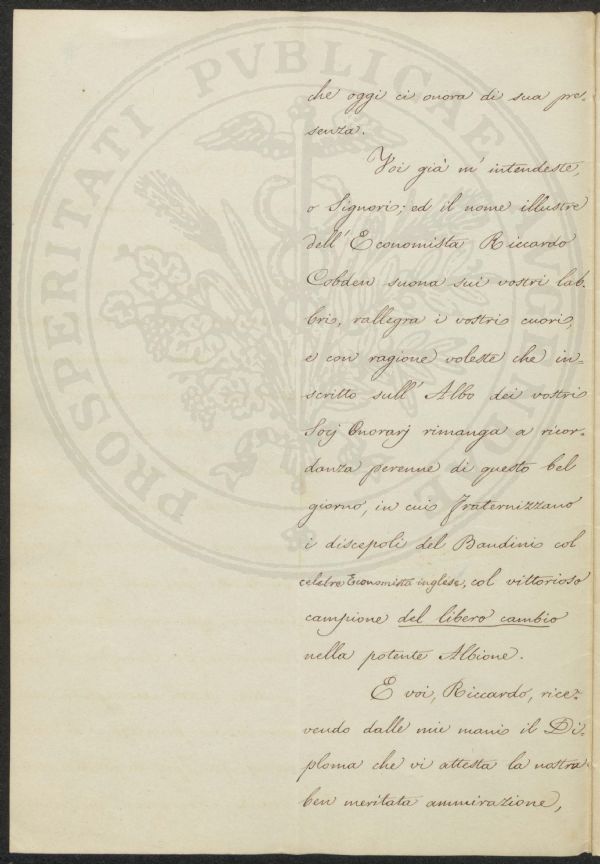 che oggi ci onora di sua pre-
senza.
Voi già m' intendeste,
o Signori; ed il nome illustre
dell' Economista Riccardo
Cobden suona sui vostri lab-
bri, rallegra i vostri cuori,
e con ragione voleste che in-
scritto sull' Albo dei vostri
Socj Onorarj rimanga a ricor-
danza perenne di questo bel
giorno, in cui fraternizzano
i discepoli del Bandini col
celebre Economista inglese, col vittorioso
campione del libero cambio
nella potente Albione.
E voi, Riccardo, rice-
vendo dalle mie mani il Di-
ploma che vi attesta la nostra
ben meritata ammirazione,
PROSPERITATI PVBLICAE